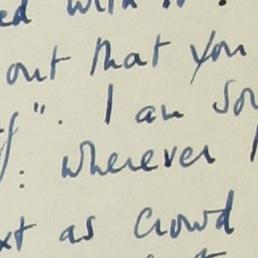 ed with it.
out that you
". I am so
: wherever
xt as crowd